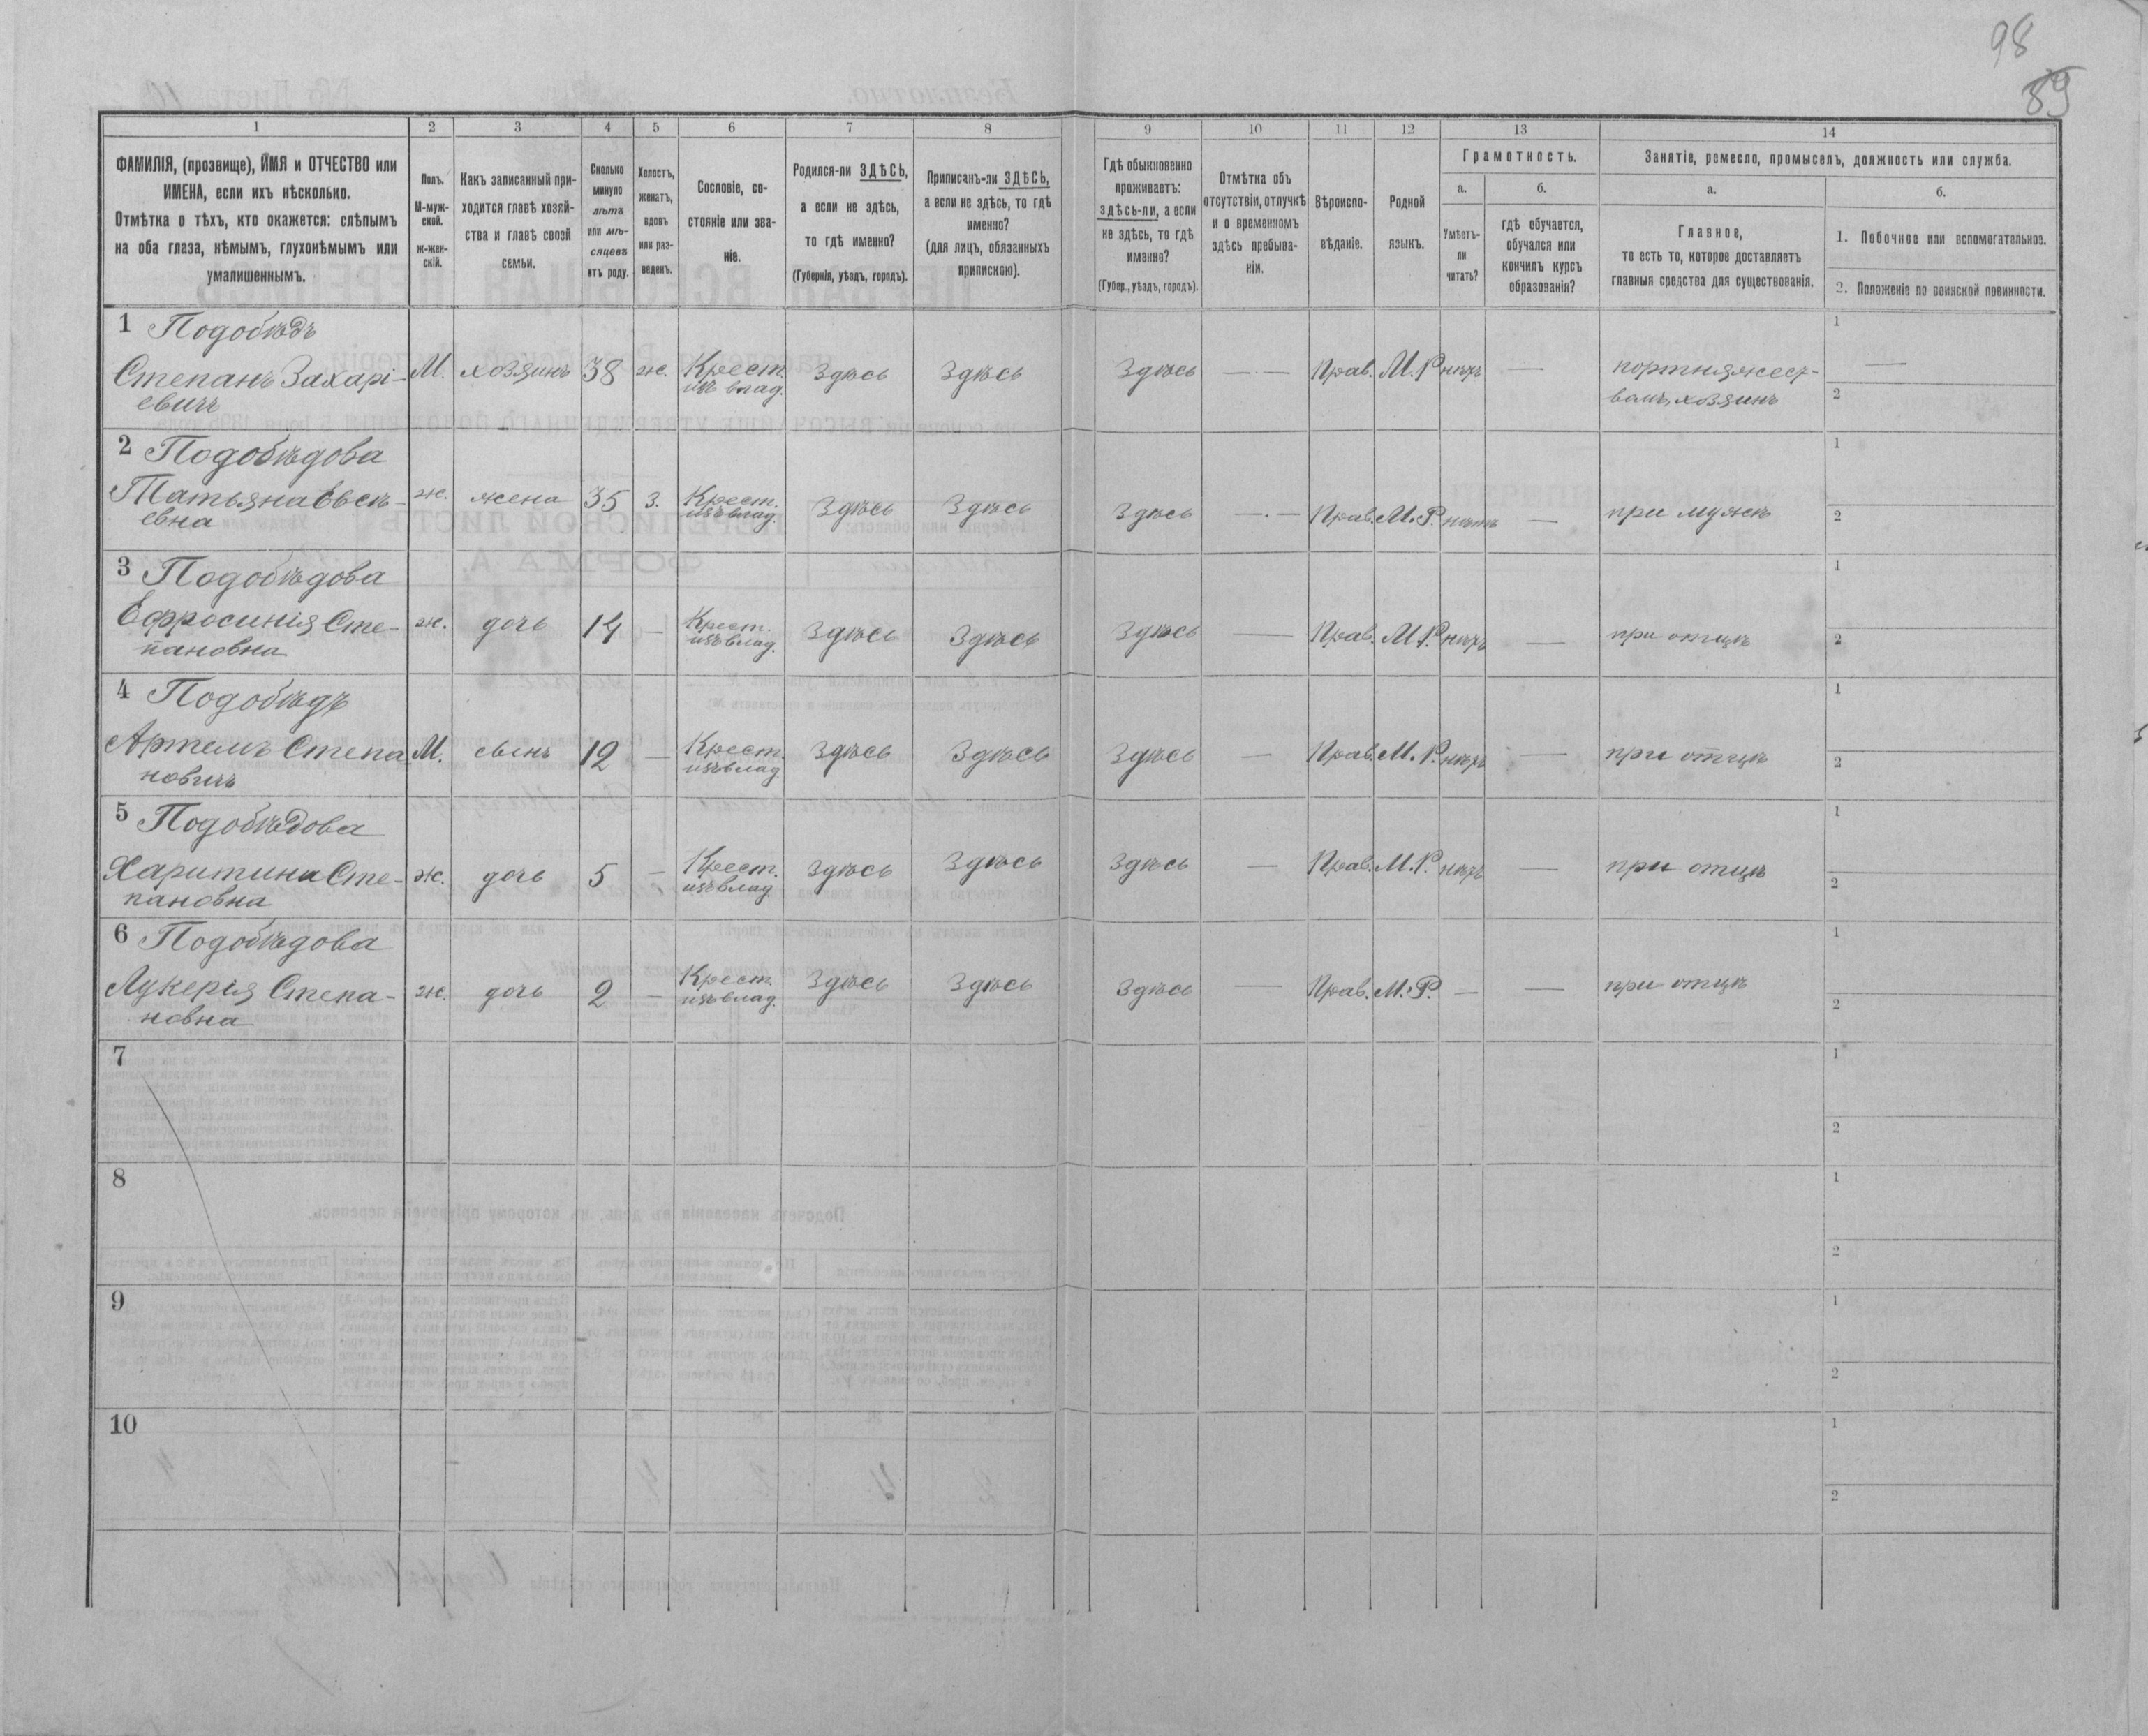 98
89
1 2 3 4 5 6 7 8 9 10 11 12 13 14
ФАМИЛІЯ, (прозвище), ИМЯ и ОТЧЕСТВО или
ИМЕНА, если ихъ нѣсколько.
Отмѣтка о тѣхъ, кто окажется: слѣпымъ
на оба глаза, нѣмымъ, глухонѣмымъ или
умалишеннымъ.
Полъ.
М-муж-
ской.
ж-жен-
скій.
Какъ записанный при-
ходится главѣ хозяй-
ства и главѣ своей
семьи.
Сколько
минуло
лѣтъ
или мѣ-
сяцевъ
отъ роду.
Холостъ,
женатъ,
вдовъ
или раз-
веденъ.
Сословіе, со-
стояніе или зва-
ніе.
Родился-ли ЗДѢСЬ,
а если не здѣсь,
то гдѣ именно?
(Губернія, уѣздъ, городъ).
Приписанъ-ли ЗДѢСЬ,
а если не здѣсь, то гдѣ
именно?
(для лицъ, обязанныхъ
припискою).
Гдѣ обыкновенно
проживаетъ:
здѣсь-ли, а если
не здѣсь, то гдѣ
именно?
(Губер., уѣздъ, городъ).
Отмѣтка объ
отсутствіи, отлучкѣ
и о временномъ
здѣсь пребыва-
ніи.
Вѣроиспо-
вѣданіе.
Родной
языкъ.
Грамотность.
а.
Умѣетъ-
ли
читать?
б.
гдѣ обучается,
обучался или
кончилъ курсъ
образованія?
Занятіе, ремесло, промыселъ, должность или служба.
а.
Главное,
то есть то, которое доставляетъ
главныя средства для существованія.
б.
1. Побочное или вспомогательное.
2. Положеніе по воинской повинности.
1 Подобѣдъ
Степанъ Захарі-
евичъ
М. хозяинъ 38 ж. Крест.
изъ влад.
Здѣсь Здѣсь Здѣсь —·— Прав. М.Р. нѣтъ —
хозяинъ
1 —
2
2 Подобѣдова
Татьяна Евсѣ-
евна
ж. жена 35 З. Крест.
изъ влад.
Здѣсь Здѣсь Здѣсь —·— Прав. М.Р. нѣтъ — при мужѣ
1
2
3 Подобѣдова
Ефросинія Сте-
пановна
ж. дочь 14 — Крест.
изъ влад.
Здѣсь Здѣсь Здѣсь — Прав. М.Р. нѣтъ — при отцѣ
1
2
4 Подобѣдъ
Артемъ Степа
новичъ
М. сынъ 12 — Крест.
изъ влад.
Здѣсь Здѣсь Здѣсь — Прав. М.Р. нѣтъ — при отцѣ
1
2
5 Подобѣдова
Харитина Сте-
пановна
ж. дочь 5 — Крест.
изъ влад
Здѣсь Здѣсь Здѣсь — Прав. М.Р. нѣтъ — при отцѣ
1
2
6 Подобѣдова
Лукерія Степа-
новна
ж. дочь 2 — Крест.
изъ влад.
Здѣсь Здѣсь Здѣсь — Прав. М.Р. — — при отцѣ
1
2
7
1
2
8
1
2
9
1
2
10
1
2